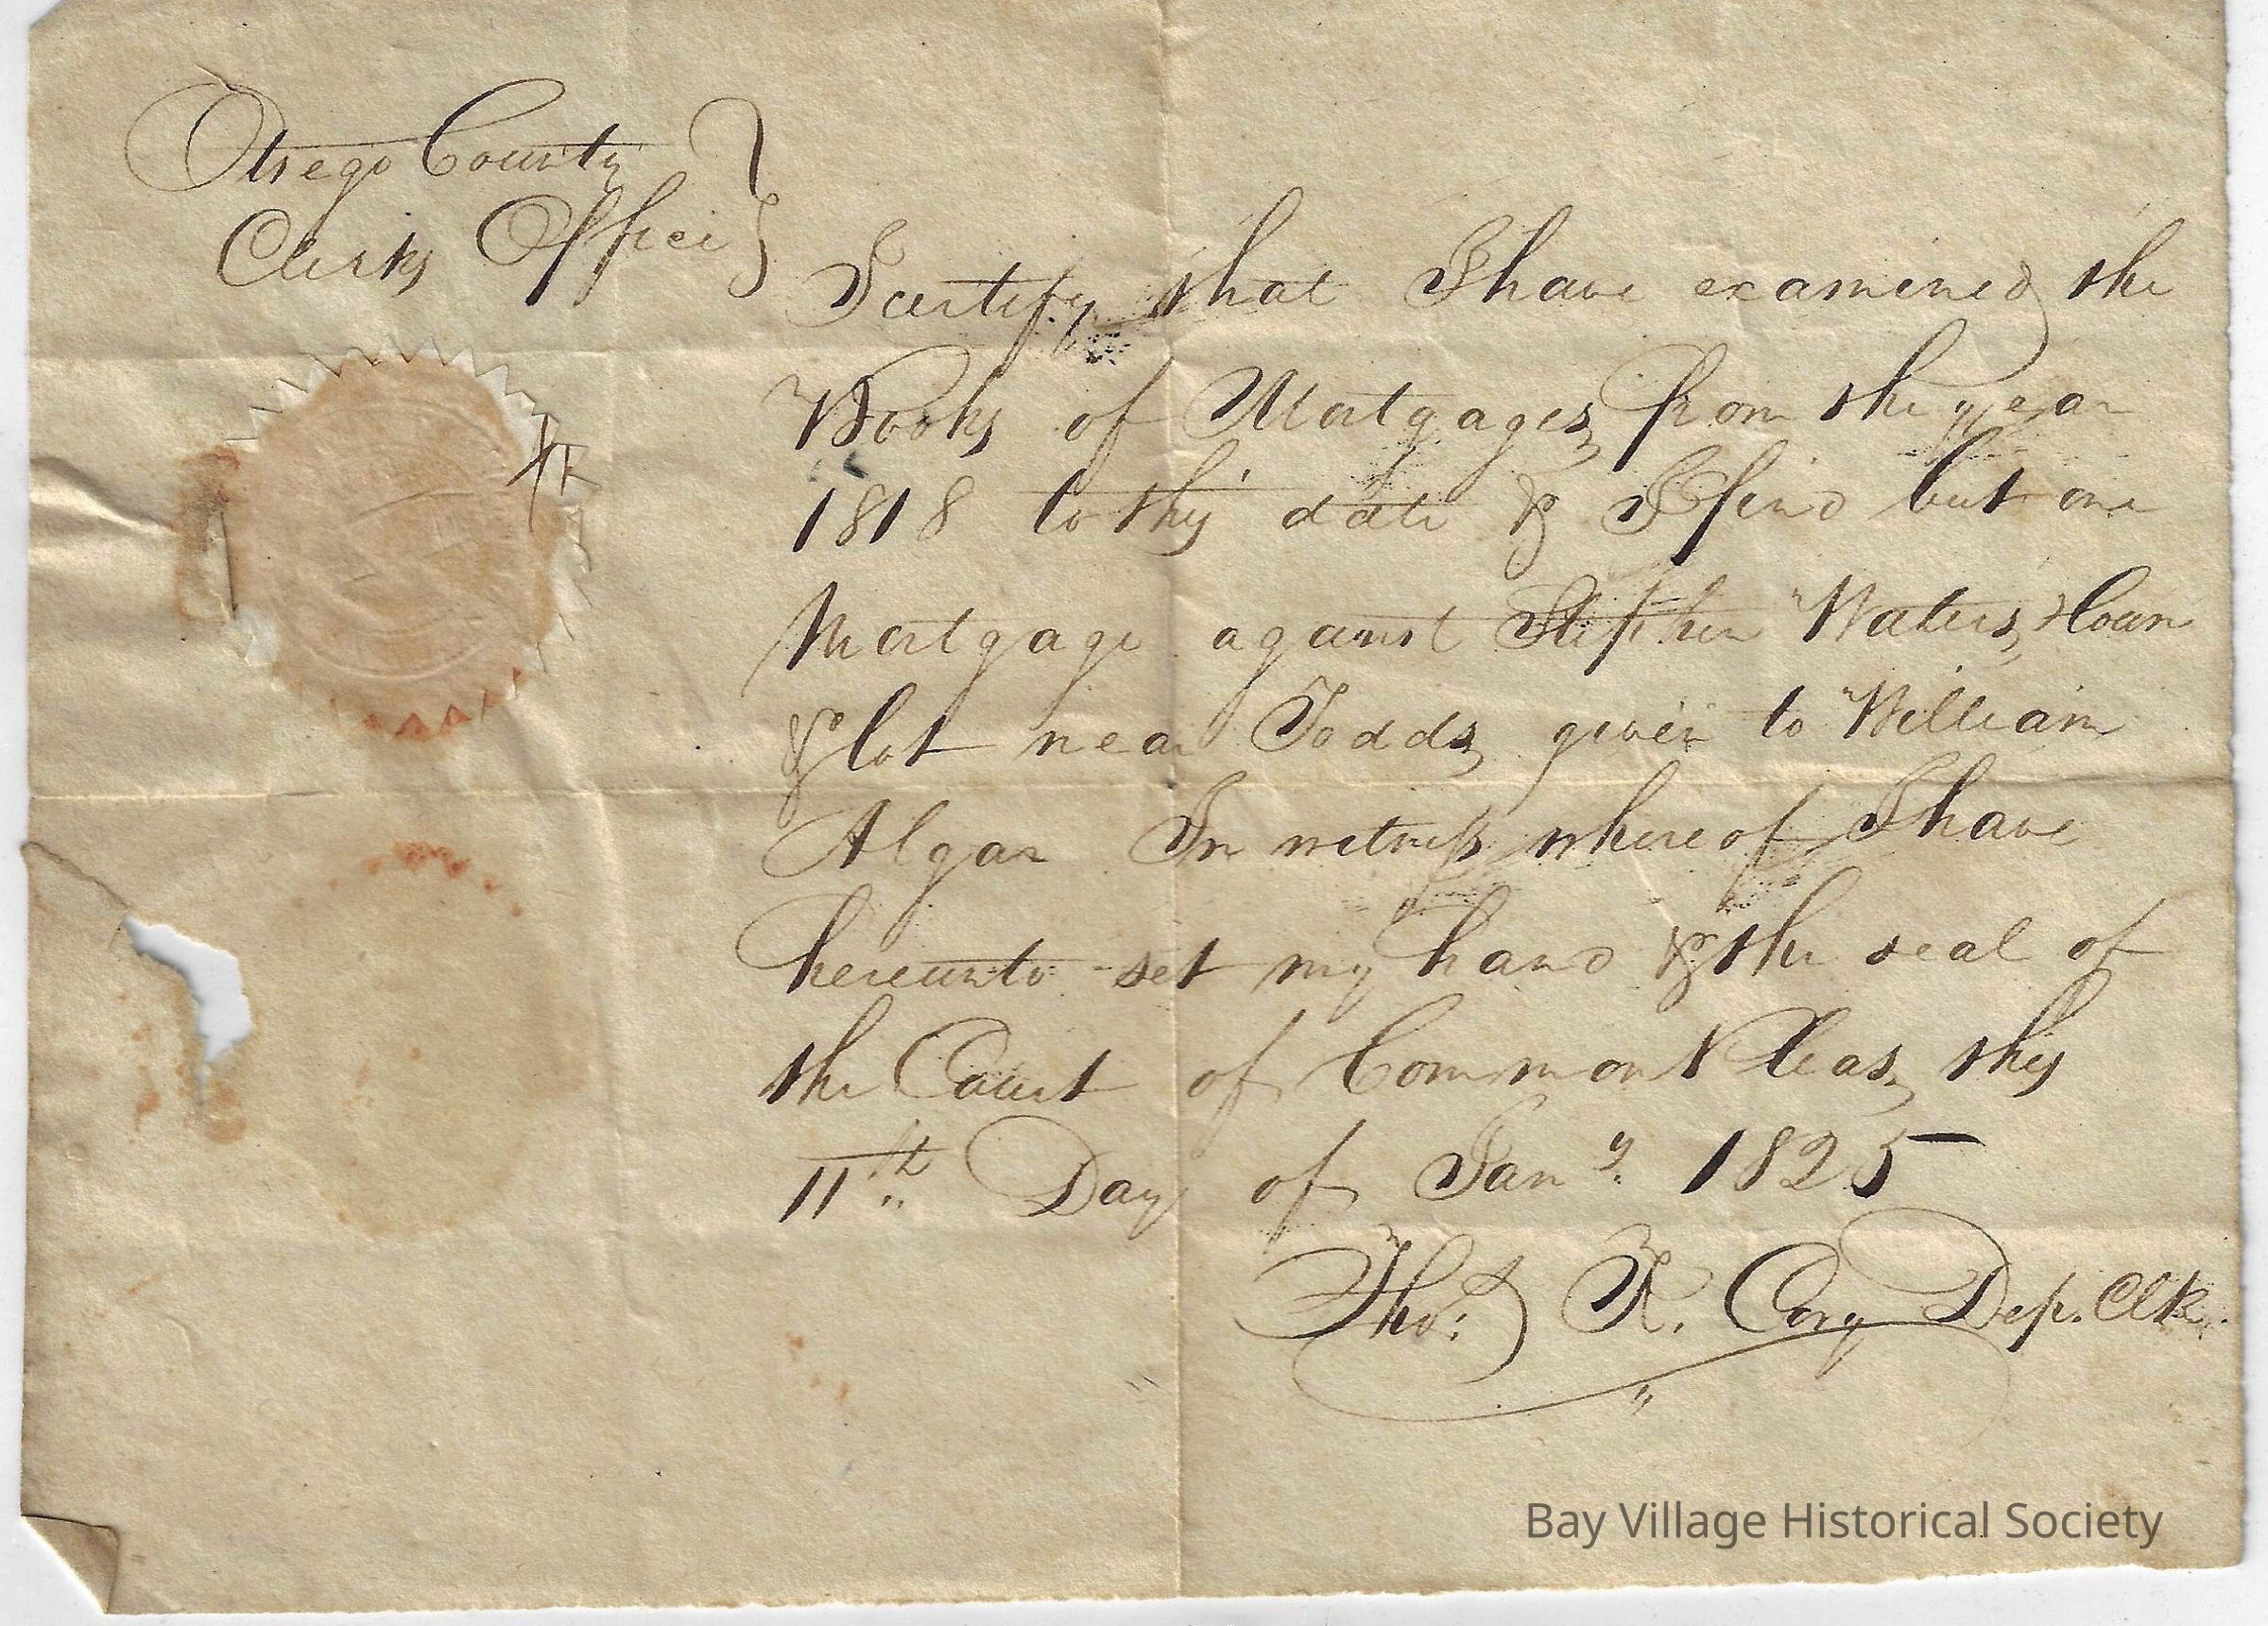 Otsego County
Clerks Office }
I certify that I have examined the
Books of Mortgages from the year
1818 to this date & I find but one
Mortgage against Stephen Waters
& lot near Todds given to William
Algar In witness whereof I have
hereunto set my hand & the seal of
the Court of Common Pleas this
11th Day of Jany. 1825
Thos: R. Cory Dep. Clk.
Bay Village Historical Society